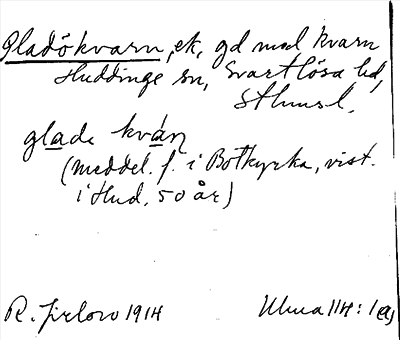 Gladökvarn, ek, gd med kvarn
Huddinge sn, Svartlösa hd,
Sthmsl.
glade kván
(meddel. f. i Botkyrka, vist.
i Hud. 50 år)
R. Jirlow 1914 Ulma 114:1(a)